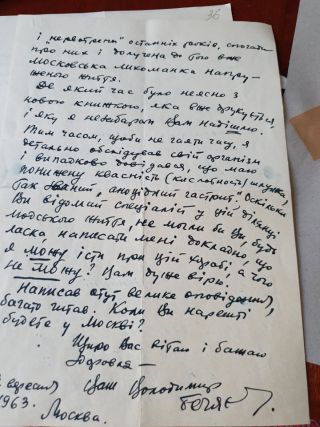 36
і "нервотрепи" останніх років, спогади
про них і долучена до того вже
московська лихоманка напру-
женого життя.
Де який час було неясно з
новою книжкою, яка вже друкується,
і яку я незабаром Вам надішлю.
Тим часом, щоби не гаяти часу, я
детально обслідував свій організм
і випадково довідався, що маю
понижену квасність (кислотность) шлунка,
так званий, аноцидний гастрит. Оскільки
Ви відомий спеціаліст у цій ділянці
людського життя, не могли би Ви, будь
ласка написати мені докладно, що
я можу їсти при цій хворобі, а чого
не можу? Вам дуже вірю.
Написав отут велике оповідання,
багато читав. Коли Ви нарешті
будете у Москві?
Щиро Вас вітаю і бажаю
здоровля —
вересня Ваш Володимир
1963. Москва.